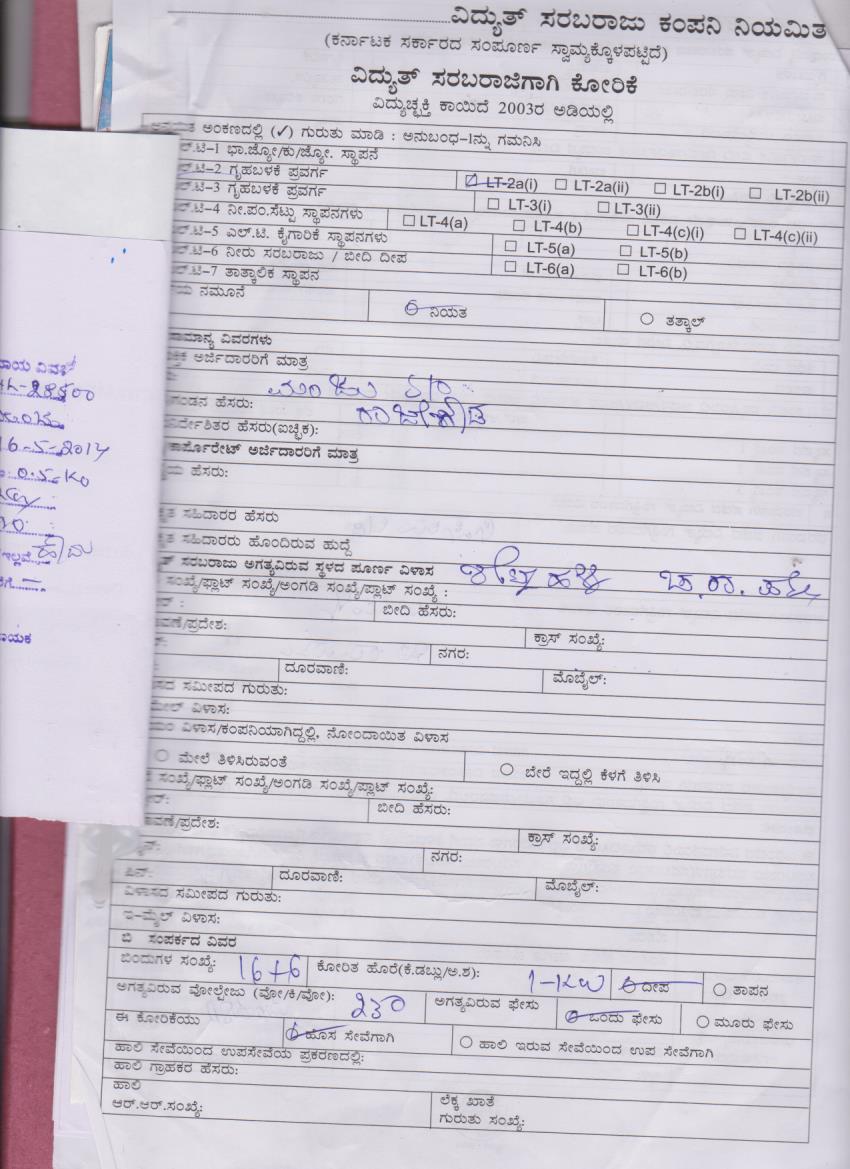 ವಿದ್ಯುತ್ ಸರಬರಾಜು ಕಂಪನಿ ನಿಯಮಿತ
(ಕರ್ನಾಟಕ ಸರ್ಕಾರದ ಸಂಪೂರ್ಣ ಸ್ವಾಮ್ಯಕ್ಕೊಳಪಟ್ಟಿದೆ)
ವಿದ್ಯುತ್ ಸರಬರಾಜಿಗಾಗಿ ಕೋರಿಕೆ
ವಿದ್ಯುಚ್ಛಕ್ತಿ ಕಾಯಿದೆ 2003ರ ಅಡಿಯಲ್ಲಿ
ಅಂಕಣದಲ್ಲಿ (✓) ಗುರುತು ಮಾಡಿ : ಅನುಬಂಧ-1ನ್ನು ಗಮನಿಸಿ
ಲ್.ಟಿ-1 ಭಾ.ಜ್ಯೋ/ಕು/ಜ್ಯೋ. ಸ್ಥಾಪನೆ
ಲ್.ಟಿ-2 ಗೃಹಬಳಕೆ ಪ್ರವರ್ಗ LT-2a(i) LT-2a(ii) LT-2b(i) LT-2b(ii)
ಲ್.ಟಿ-3 ಗೃಹಬಳಕೆ ಪ್ರವರ್ಗ LT-3(i) LT-3(ii)
ಲ್.ಟಿ-4 ನೀ.ಪಂ.ಸೆಟ್ಟು ಸ್ಥಾಪನಗಳು LT-4(a) LT-4(b) LT-4(c)(i) LT-4(c)(ii)
ಲ್.ಟಿ-5 ಎಲ್.ಟಿ. ಕೈಗಾರಿಕೆ ಸ್ಥಾಪನಗಳು LT-5(a) LT-5(b)
ಲ್.ಟಿ-6 ನೀರು ಸರಬರಾಜು / ಬೀದಿ ದೀಪ LT-6(a) LT-6(b)
ಲ್.ಟಿ-7 ತಾತ್ಕಾಲಿಕ ಸ್ಥಾಪನ
ಯ ನಮೂನೆ ನಿಯತ ತತ್ಕಾಲ್
ಸಾಮಾನ್ಯ ವಿವರಗಳು
ಅರ್ಜಿದಾರರಿಗೆ ಮಾತ್ರ
ಮಂಜು S/o
ಗಂಡನ ಹೆಸರು: ರಾಜೇಗೌಡ
ನಿರ್ದೇಶಿತರ ಹೆಸರು(ಐಚ್ಛಿಕ):
ಕಾರ್ಪೊರೇಟ್ ಅರ್ಜಿದಾರರಿಗೆ ಮಾತ್ರ
ಯ ಹೆಸರು:
ಕೃತ ಸಹಿದಾರರ ಹೆಸರು
ಕೃತ ಸಹಿದಾರರು ಹೊಂದಿರುವ ಹುದ್ದೆ
ತ್ ಸರಬರಾಜು ಅಗತ್ಯವಿರುವ ಸ್ಥಳದ ಪೂರ್ಣ ವಿಳಾಸ
ಸಂಖ್ಯೆ/ಫ್ಲಾಟ್ ಸಂಖ್ಯೆ/ಅಂಗಡಿ ಸಂಖ್ಯೆ/ಪ್ಲಾಟ್ ಸಂಖ್ಯೆ :
ಬೀದಿ ಹೆಸರು:
ವಣೆ/ಪ್ರದೇಶ: ಕ್ರಾಸ್ ಸಂಖ್ಯೆ:
ನಗರ:
ದೂರವಾಣಿ: ಮೊಬೈಲ್:
ಸದ ಸಮೀಪದ ಗುರುತು:
ಮೇಲ್ ವಿಳಾಸ:
ವಿಳಾಸ/ಕಂಪನಿಯಾಗಿದ್ದಲ್ಲಿ, ನೋಂದಾಯಿತ ವಿಳಾಸ
ಮೇಲೆ ತಿಳಿಸಿರುವಂತೆ ಬೇರೆ ಇದ್ದಲ್ಲಿ ಕೆಳಗೆ ತಿಳಿಸಿ
ಸಂಖ್ಯೆ/ಫ್ಲಾಟ್ ಸಂಖ್ಯೆ/ಅಂಗಡಿ ಸಂಖ್ಯೆ/ಪ್ಲಾಟ್ ಸಂಖ್ಯೆ:
ಬೀದಿ ಹೆಸರು:
ವಣೆ/ಪ್ರದೇಶ: ಕ್ರಾಸ್ ಸಂಖ್ಯೆ:
ನಗರ:
ಪಿನ್: ದೂರವಾಣಿ: ಮೊಬೈಲ್:
ವಿಳಾಸದ ಸಮೀಪದ ಗುರುತು:
ಇ-ಮೈಲ್ ವಿಳಾಸ:
ಬಿ ಸಂಪರ್ಕದ ವಿವರ
ಬಿಂದುಗಳ ಸಂಖ್ಯೆ: 16+6 ಕೋರಿತ ಹೊರೆ(ಕೆ.ಡಬ್ಲು/ಅ.ಶ): 1-KW ದೀಪ ತಾಪನ
ಅಗತ್ಯವಿರುವ ವೋಲ್ಟೇಜು (ವೋ/ಕಿ/ವೋ): 230 ಅಗತ್ಯವಿರುವ ಫೇಸು ಒಂದು ಫೇಸು ಮೂರು ಫೇಸು
ಈ ಕೋರಿಕೆಯು ಹೊಸ ಸೇವೆಗಾಗಿ ಹಾಲಿ ಇರುವ ಸೇವೆಯಿಂದ ಉಪ ಸೇವೆಗಾಗಿ
ಹಾಲಿ ಸೇವೆಯಿಂದ ಉಪಸೇವೆಯ ಪ್ರಕರಣದಲ್ಲಿ:
ಹಾಲಿ ಗ್ರಾಹಕರ ಹೆಸರು:
ಹಾಲಿ
ಆರ್.ಆರ್.ಸಂಖ್ಯೆ: ಲೆಕ್ಕ ಖಾತೆ
ಗುರುತು ಸಂಖ್ಯೆ: